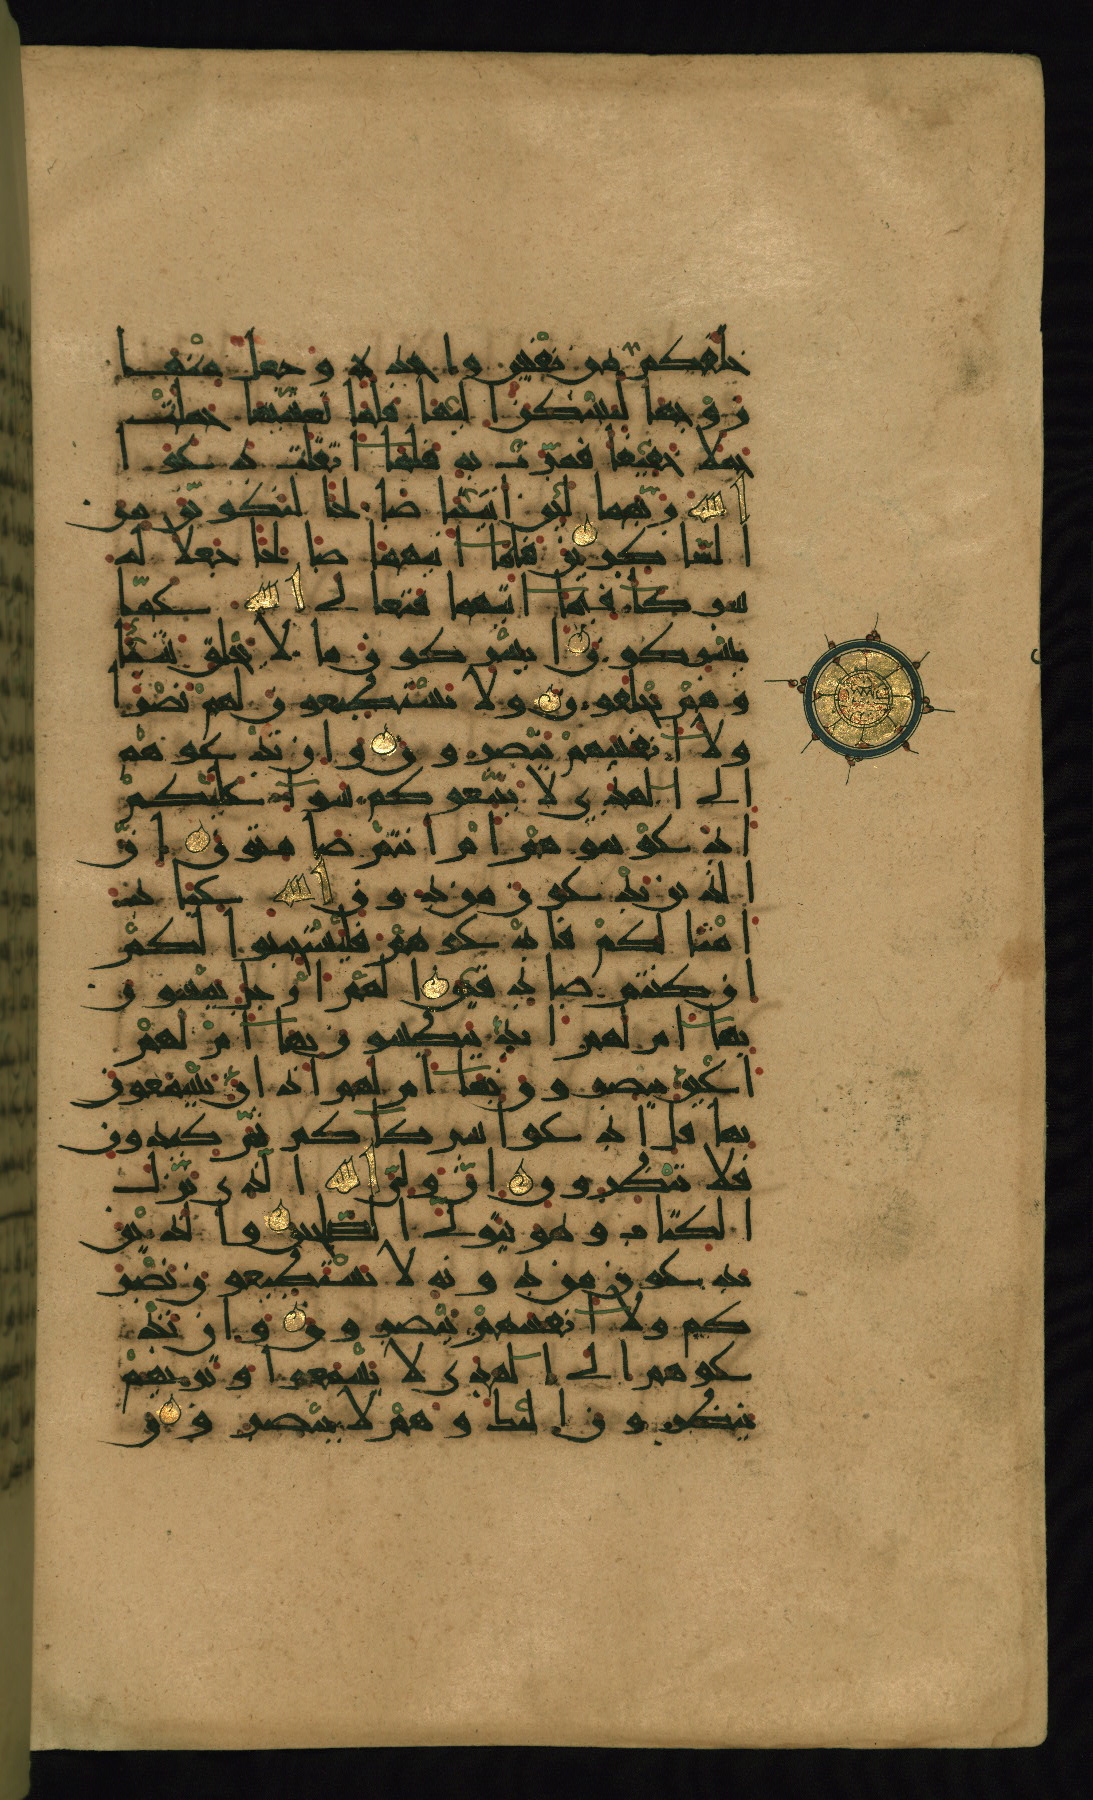 خلقكم من نفس واحدة وجعل منها
زوجها ليسكن اليها فلما تغشيها حملت
حملا خفيفا فمرت به فلما اثقلت دعوا
الله ربهما لئن اتيتنا صالحا لنكونن من
الشاكرين فلما اتيهما صالحا جعلا له
شركاء فيما اتيهما فتعالى الله عما
يشركون ايشركون ما لا يخلق شيئا
وهم يخلقون ولا يستطيعون لهم نصرا
ولا انفسهم ينصرون وان تدعوهم
الى الهدى لا يتبعوكم سواء عليكم
ادعوتموهم ام انتم صامتون ان
الذين تدعون من دون الله عباد
امثالكم فادعوهم فليستجيبوا لكم
ان كنتم صادقين الهم ارجل يمشون
بها ام لهم ايد يبطشون بها ام لهم
اعين يبصرون بها ام لهم اذان يسمعون
بها قل ادعوا شركاءكم ثم كيدون
فلا تنظرون ان ولي الله الذي نزل
الكتاب وهو يتولى الصالحين والذين
تدعون من دونه لا يستطيعون نصر
كم ولا انفسهم ينصرون وان تد
عوهم الى الهدى لا يسمعوا وتريهم
ينظرون اليك وهم لا يبصرون